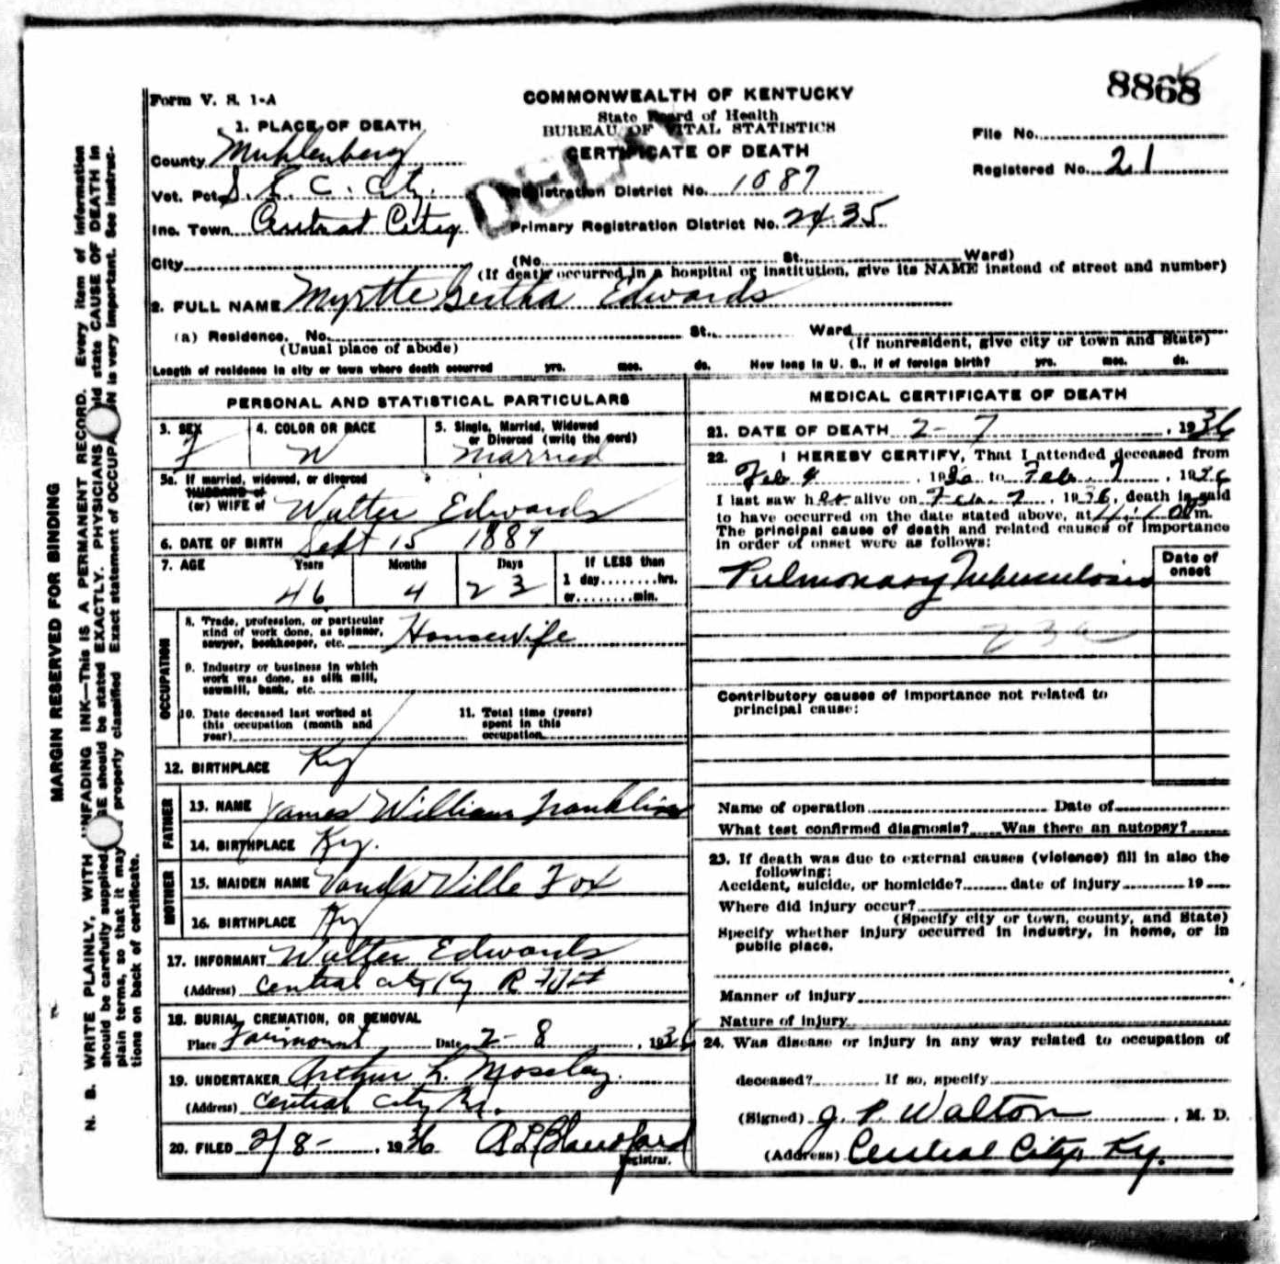 8868
Form V. S. 1-A
COMMONWEALTH OF KENTUCKY
State Board of Health
BUREAU OF VITAL STATISTICS
CERTIFICATE OF DEATH
File No.
Registered No. 21
1. PLACE OF DEATH
County Muhlenberg
Vot. Pct. S. E. C. City
Registration District No. 1087
Inc. Town Central City
Primary Registration District No. 2435
City (No. St. Ward)
(If death occurred in a hospital or institution, give its NAME instead of street and number)
2. FULL NAME Myrtle Gertha Edwards
(a) Residence. No. St. Ward
(Usual place of abode) (If nonresident, give city or town and State)
Length of residence in city or town where death occurred yrs. mos. ds. How long in U. S., if of foreign birth? yrs. mos. ds.
PERSONAL AND STATISTICAL PARTICULARS
3. SEX F
4. COLOR OR RACE W
5. Single, Married, Widowed or Divorced (write the word) Married
5a. If married, widowed, or divorced
HUSBAND of
(or) WIFE of Walter Edwards
6. DATE OF BIRTH Sept 15 1889
7. AGE Years 46 Months 4 Days 23 If LESS than 1 day hrs. or min.
OCCUPATION
8. Trade, profession, or particular kind of work done, as spinner, sawyer, bookkeeper, etc. Housewife
9. Industry or business in which work was done, as silk mill, sawmill, bank, etc.
10. Date deceased last worked at this occupation (month and year)
11. Total time (years) spent in this occupation
12. BIRTHPLACE Ky
FATHER
13. NAME James William Franklin
14. BIRTHPLACE Ky.
MOTHER
15. MAIDEN NAME Vanda Ville Fox
16. BIRTHPLACE Ky
17. INFORMANT Walter Edwards
(Address) Central City Ky R
18. BURIAL, CREMATION, OR REMOVAL
Place Fairmount Date 2-8, 1936
19. UNDERTAKER Arthur L. Moseley.
(Address) Central City Ky.
20. FILED 2/8-, 1936
Registrar.
MEDICAL CERTIFICATE OF DEATH
21. DATE OF DEATH 2-7, 1936
22. I HEREBY CERTIFY, That I attended deceased from
Feb 4, 1936 to Feb. 7, 1936
I last saw her alive on Feb. 7, 1936, death is said
to have occurred on the date stated above, at m.
The principal cause of death and related causes of importance
in order of onset were as follows:
Date of onset
Pulmonary Tuberculosis
23
Contributory causes of importance not related to
principal cause:
Name of operation Date of
What test confirmed diagnosis? Was there an autopsy?
23. If death was due to external causes (violence) fill in also the
following:
Accident, suicide, or homicide? date of injury 19
Where did injury occur?
(Specify city or town, county, and State)
Specify whether injury occurred in industry, in home, or in
public place.
Manner of injury
Nature of injury
24. Was disease or injury in any way related to occupation of
deceased? If so, specify
(Signed) J. P. Walton, M. D.
(Address) Central City, Ky.
MARGIN RESERVED FOR BINDING
N. B. WRITE PLAINLY, WITH UNFADING INK—This IS A PERMANENT RECORD. Every item of information
should be carefully supplied. AGE should be stated EXACTLY. PHYSICIANS should state CAUSE OF DEATH in
plain terms, so that it may properly classified Exact statement of OCCUPATION is very important. See instruc-
tions on back of certificate.